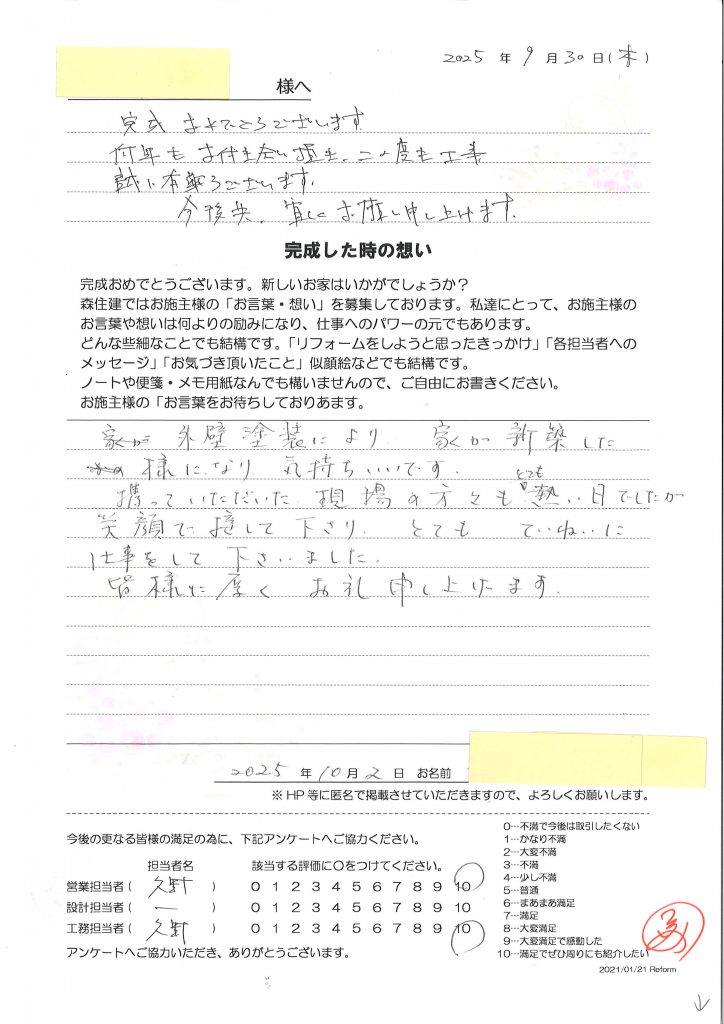 2025 年 9 月 30 日 (木)
様へ
完成 おめでとうございます
何年も お付き合い頂き、この度も工事
誠に有難うございます。
今後共、宜しく お願い申し上げます。
完成した時の想い
完成おめでとうございます。新しいお家はいかがでしょうか？
森住建ではお施主様の「お言葉・想い」を募集しております。私達にとって、お施主様の
お言葉や想いは何よりの励みになり、仕事へのパワーの元でもあります。
どんな些細なことでも結構です。「リフォームをしようと思ったきっかけ」「各担当者への
メッセージ」「お気づき頂いたこと」似顔絵などでも結構です。
ノートや便箋・メモ用紙なんでも構いませんので、ご自由にお書きください。
お施主様の「お言葉をお待ちしておりあます。
外壁塗装により 家が新築した
様になり 気持ちいいです。
携っていただいた 現場の方々もとても熱い日でしたが
笑顔で接して下さり、とても ていねいに
仕事をして下さいました。
皆様に厚く お礼申し上げます。
2025 年 10 月 2 日 お名前
※HP 等に匿名で掲載させていただきますので、よろしくお願いします。
今後の更なる皆様の満足の為に、下記アンケートへご協力ください。
担当者名 該当する評価に○をつけてください。
営業担当者( 久野 ) 0 1 2 3 4 5 6 7 8 9 10
設計担当者( ー ) 0 1 2 3 4 5 6 7 8 9 10
工務担当者( 久野 ) 0 1 2 3 4 5 6 7 8 9 10
アンケートへご協力いただき、ありがとうございます。
0…不満で今後は取引したくない
1…かなり不満
2…大変不満
3…不満
4…少し不満
5…普通
6…まあまあ満足
7…満足
8…大変満足
9…大変満足で感動した
10…満足でぜひ周りにも紹介したい
2021/01/21 Reform